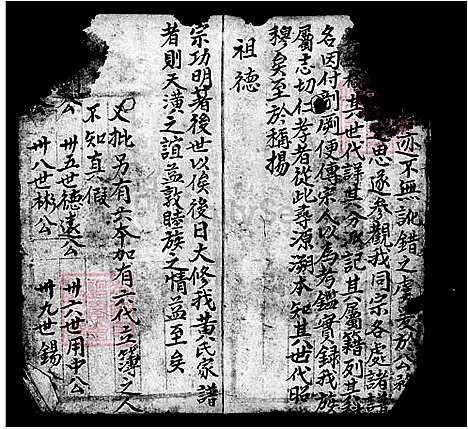 亦不無訛錯之虞爰於公
思遂參觀我同宗各處諸譜
其世代詳其分派記其屬籍列其
名因付剞劂便傳宗人以為考鑑實錄我族
屬志切仁孝者從此尋源溯本知其世代昭
穆矣至於稱揚
祖德
宗功明著後世以俟後日大修我黃氏家譜
者則天潢之誼益敦睦族之情益至矣
又批另有一本加有六代立簿之人
不知真假
公
卅五世德遠公
卅六世用中公
卅八世彬公
卅九世錫公